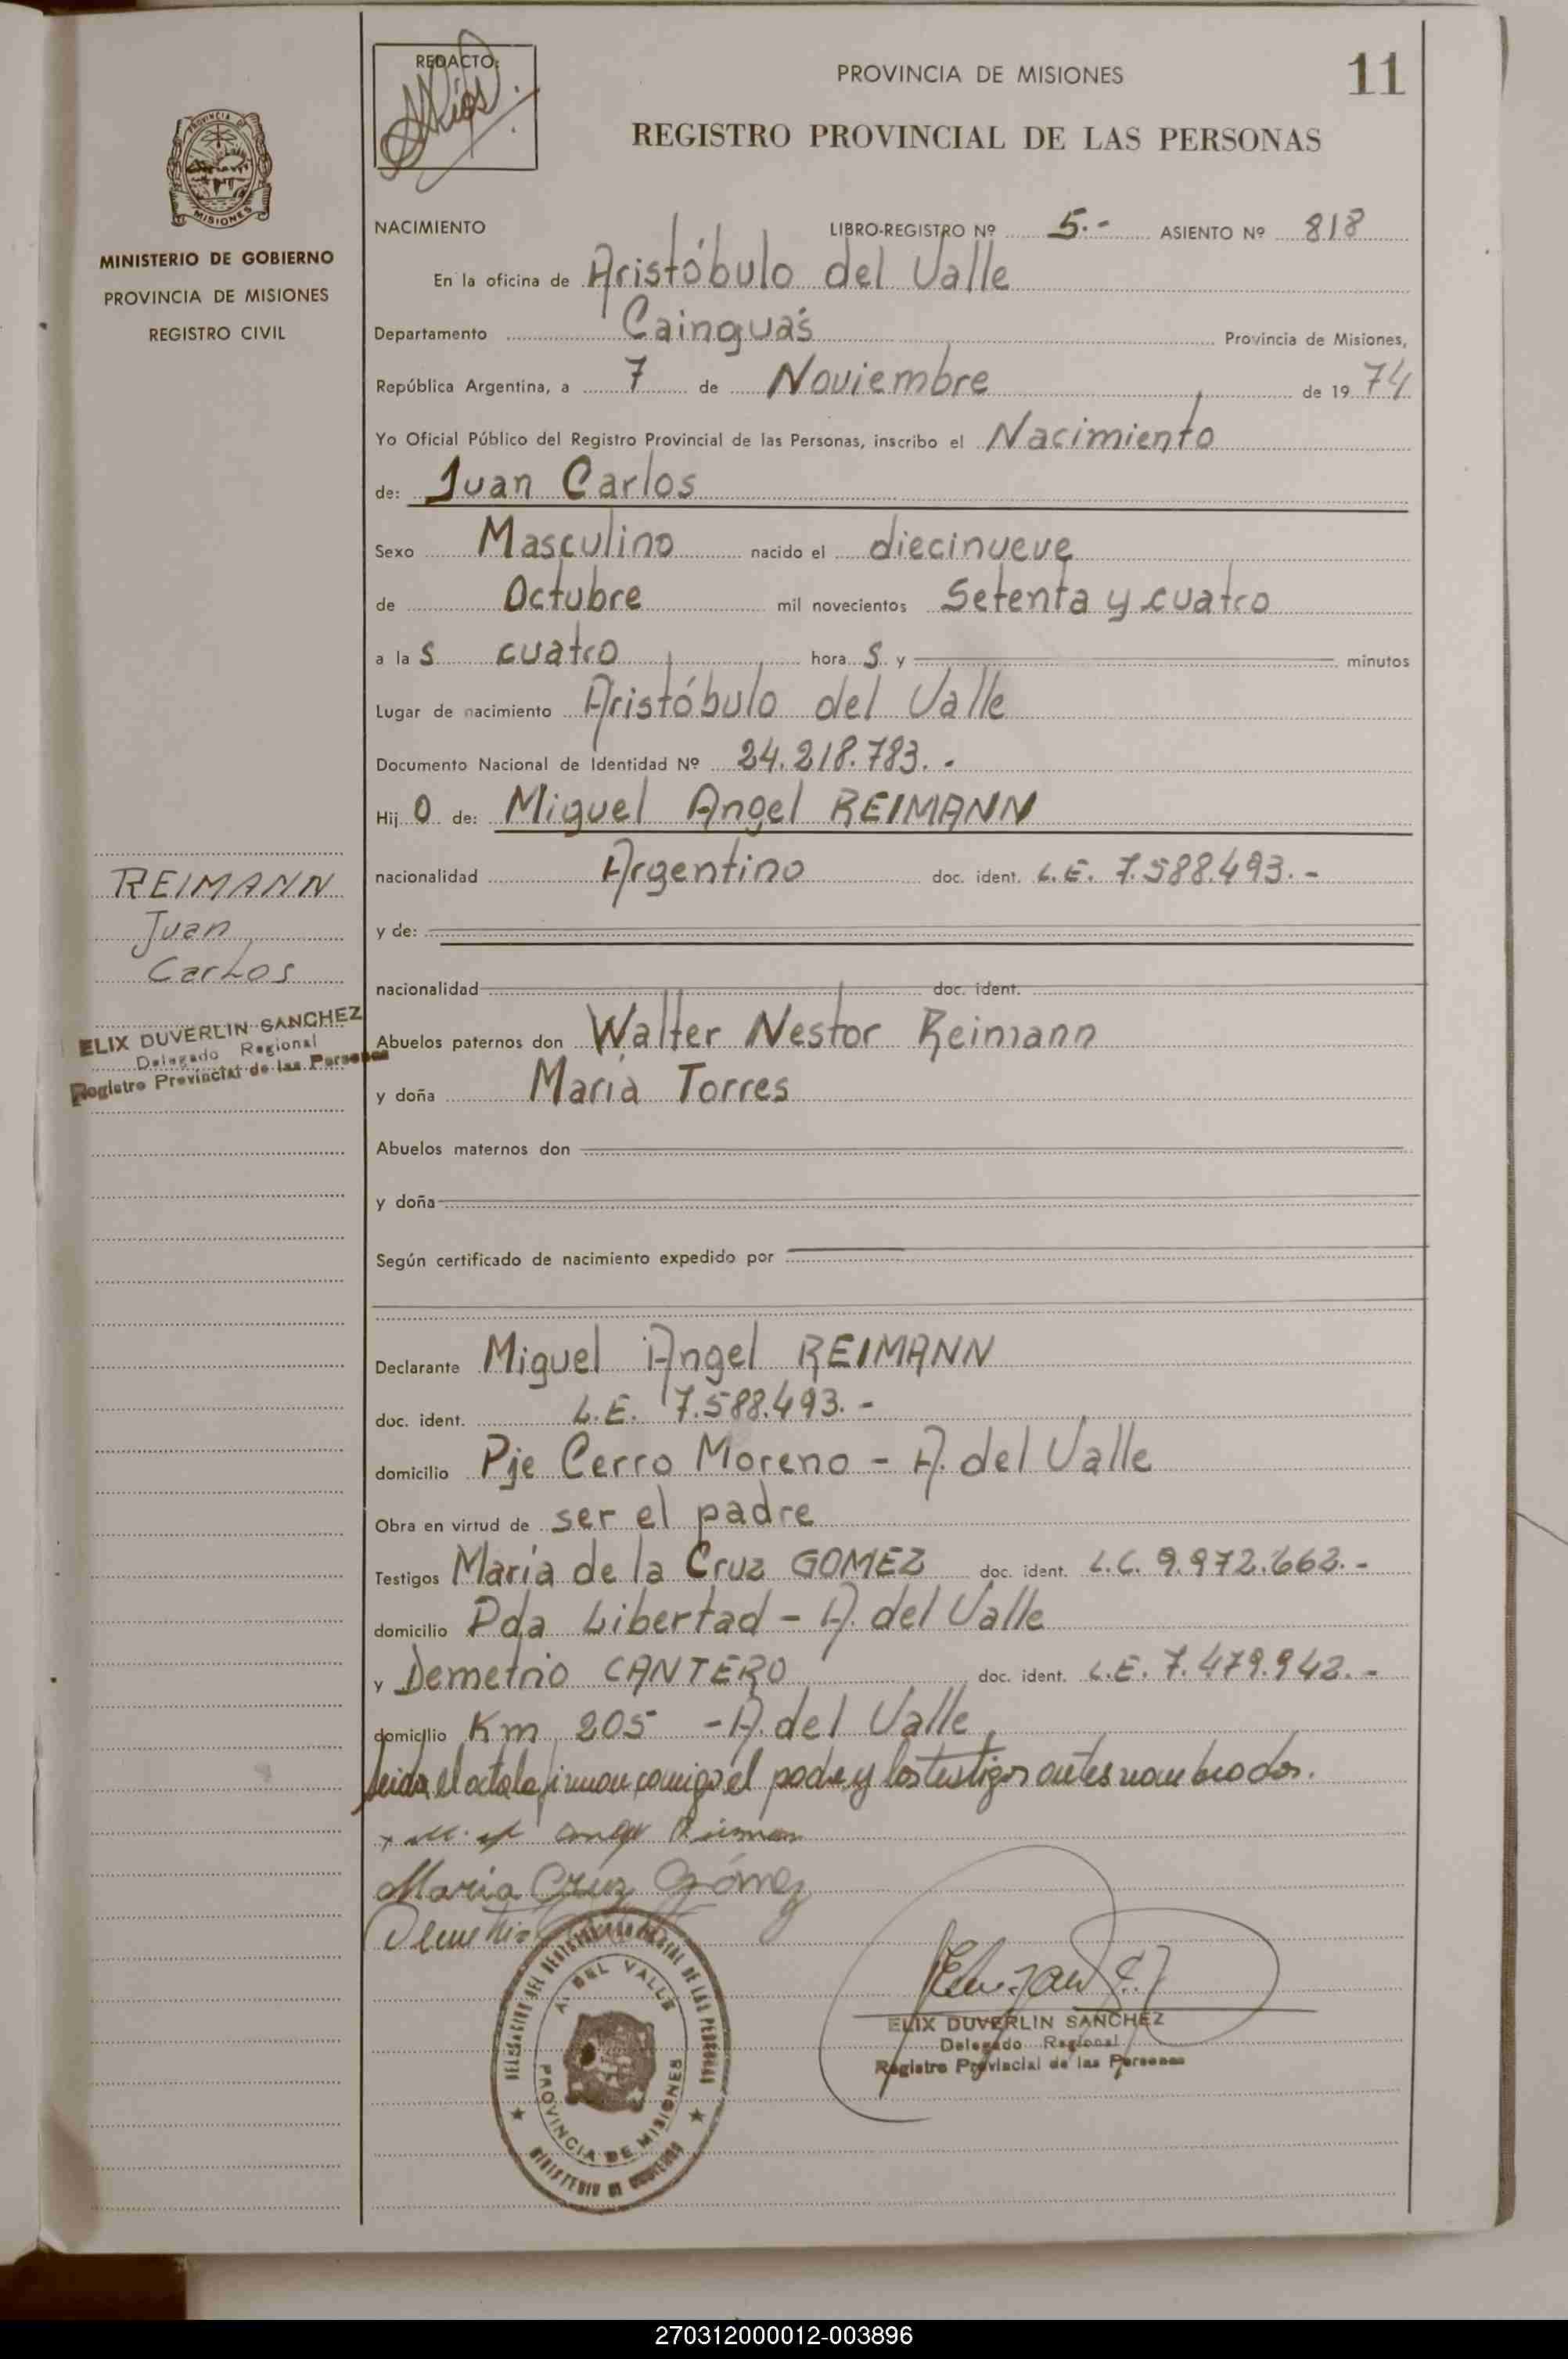 REDACTO:
PROVINCIA DE MISIONES
11
REGISTRO PROVINCIAL DE LAS PERSONAS
PROVINCIA DE
MISIONES
MINISTERIO DE GOBIERNO
PROVINCIA DE MISIONES
REGISTRO CIVIL
NACIMIENTO LIBRO-REGISTRO Nº 5.- ASIENTO Nº 818
En la oficina de Aristóbulo del Valle
Departamento Cainguás Provincia de Misiones,
República Argentina, a 7 de Noviembre de 1974
Yo Oficial Público del Registro Provincial de las Personas, inscribo el Nacimiento
de: Juan Carlos
Sexo Masculino nacido el diecinueve
de Octubre mil novecientos Setenta y cuatro
a las cuatro horas y minutos
Lugar de nacimiento Aristóbulo del Valle
Documento Nacional de Identidad Nº 24.218.783.-
Hijo de: Miguel Angel REIMANN
nacionalidad Argentino doc. ident. L.E. 7.588.493.-
y de:
nacionalidad doc. ident.
REIMANN
Juan
Carlos
ELIX DUVERLIN SANCHEZ
Delegado Regional
Registro Provincial de las Personas
Abuelos paternos don Walter Nestor Reimann
y doña Maria Torres
Abuelos maternos don
y doña
Según certificado de nacimiento expedido por
Declarante Miguel Angel REIMANN
doc. ident. L.E. 7.588.493.-
domicilio Pje Cerro Moreno - A. del Valle
Obra en virtud de ser el padre
Testigos María de la Cruz GOMEZ doc. ident. L.C. 9.972.662.-
domicilio Pda Libertad - A. del Valle
y Demetrio CANTERO doc. ident. L.E. 7.479.942.-
domicilio Km 205 - A. del Valle
leida el acta la firman conmigo el padre y los testigos antes nombrados.
Maria Cruz Gómez
Demetrio
DELEGACION DEL REGISTRO PROVINCIAL DE LAS PERSONAS
A. DEL VALLE
PROVINCIA DE MISIONES
MINISTERIO DE GOBIERNO
ELIX DUVERLIN SANCHEZ
Delegado Regional
Registro Provincial de las Personas
270312000012-003896